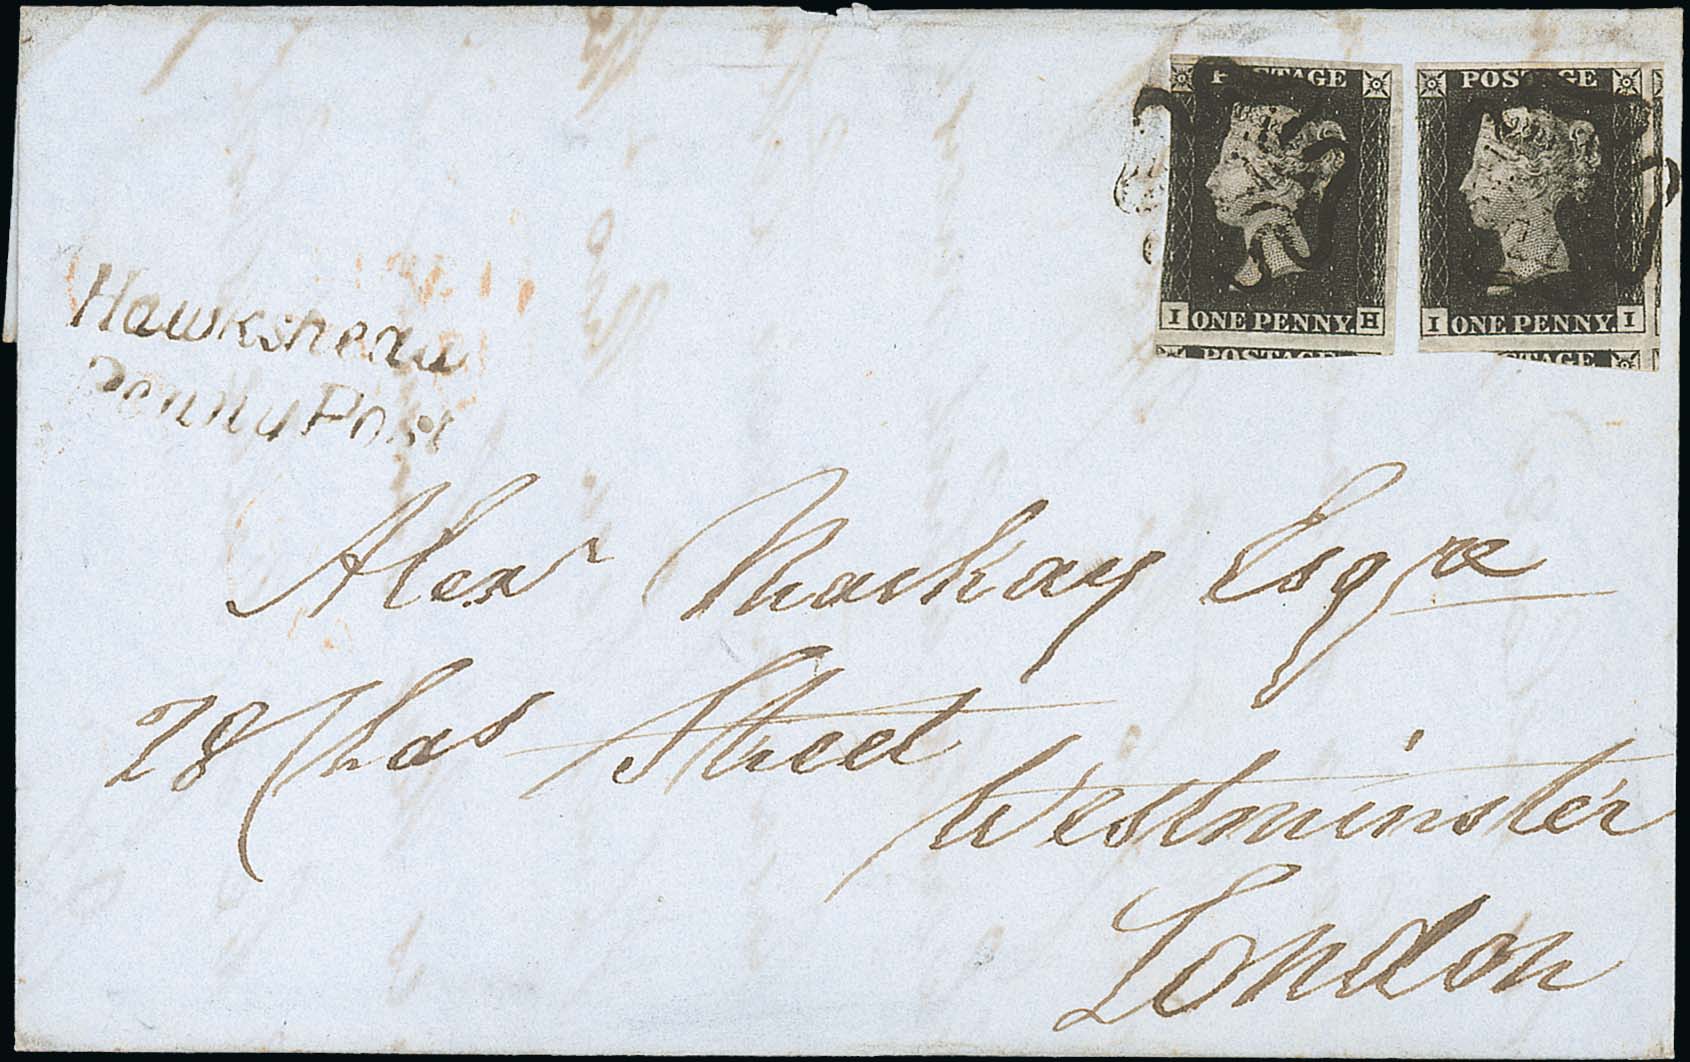 POSTAGE
I ONE PENNY. H
POSTAGE
POSTAGE
I ONE PENNY. I
STAGE
Hawkshead
Penny Post
Alexr Mackay Esqre
28 Chas Street
Westminster
London